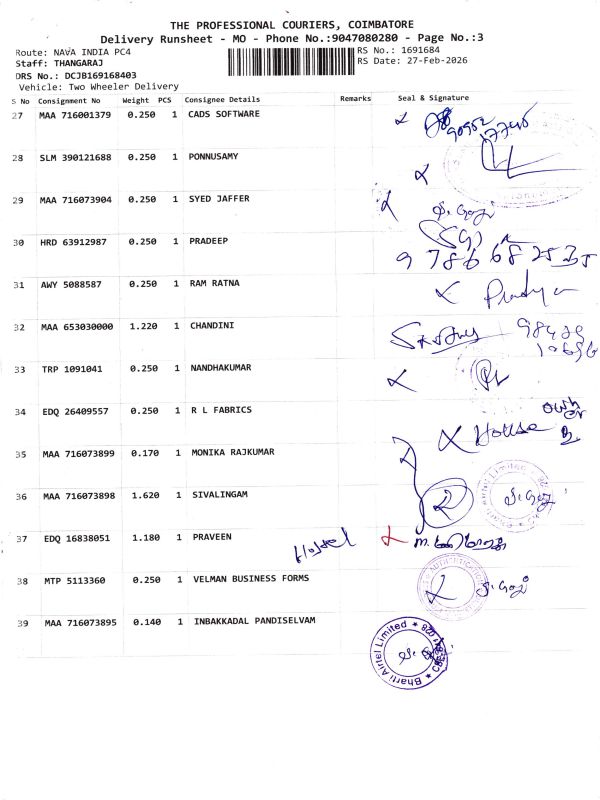 THE PROFESSIONAL COURIERS, COIMBATORE
Delivery Runsheet - MO - Phone No.:9047080280 - Page No.:3
Route: NAVA INDIA PC4
RS No.: 1691684
Staff: THANGARAJ
RS Date: 27-Feb-2026
DRS No.: DCJB169168403
Vehicle: Two Wheeler Delivery
S No Consignment No Weight PCS Consignee Details Remarks Seal & Signature
27 MAA 716001379 0.250 1 CADS SOFTWARE
28 SLM 390121688 0.250 1 PONNUSAMY
29 MAA 716073904 0.250 1 SYED JAFFER
30 HRD 63912987 0.250 1 PRADEEP
31 AWY 5088587 0.250 1 RAM RATNA
32 MAA 653030000 1.220 1 CHANDINI
33 TRP 1091041 0.250 1 NANDHAKUMAR
34 EDQ 26409557 0.250 1 R L FABRICS
House owner
35 MAA 716073899 0.170 1 MONIKA RAJKUMAR
36 MAA 716073898 1.620 1 SIVALINGAM
Bharti Airtel Limited
37 EDQ 16838051 1.180 1 PRAVEEN
Hostel
38 MTP 5113360 0.250 1 VELMAN BUSINESS FORMS
39 MAA 716073895 0.140 1 INBAKKADAL PANDISELVAM
Bharti Airtel Limited